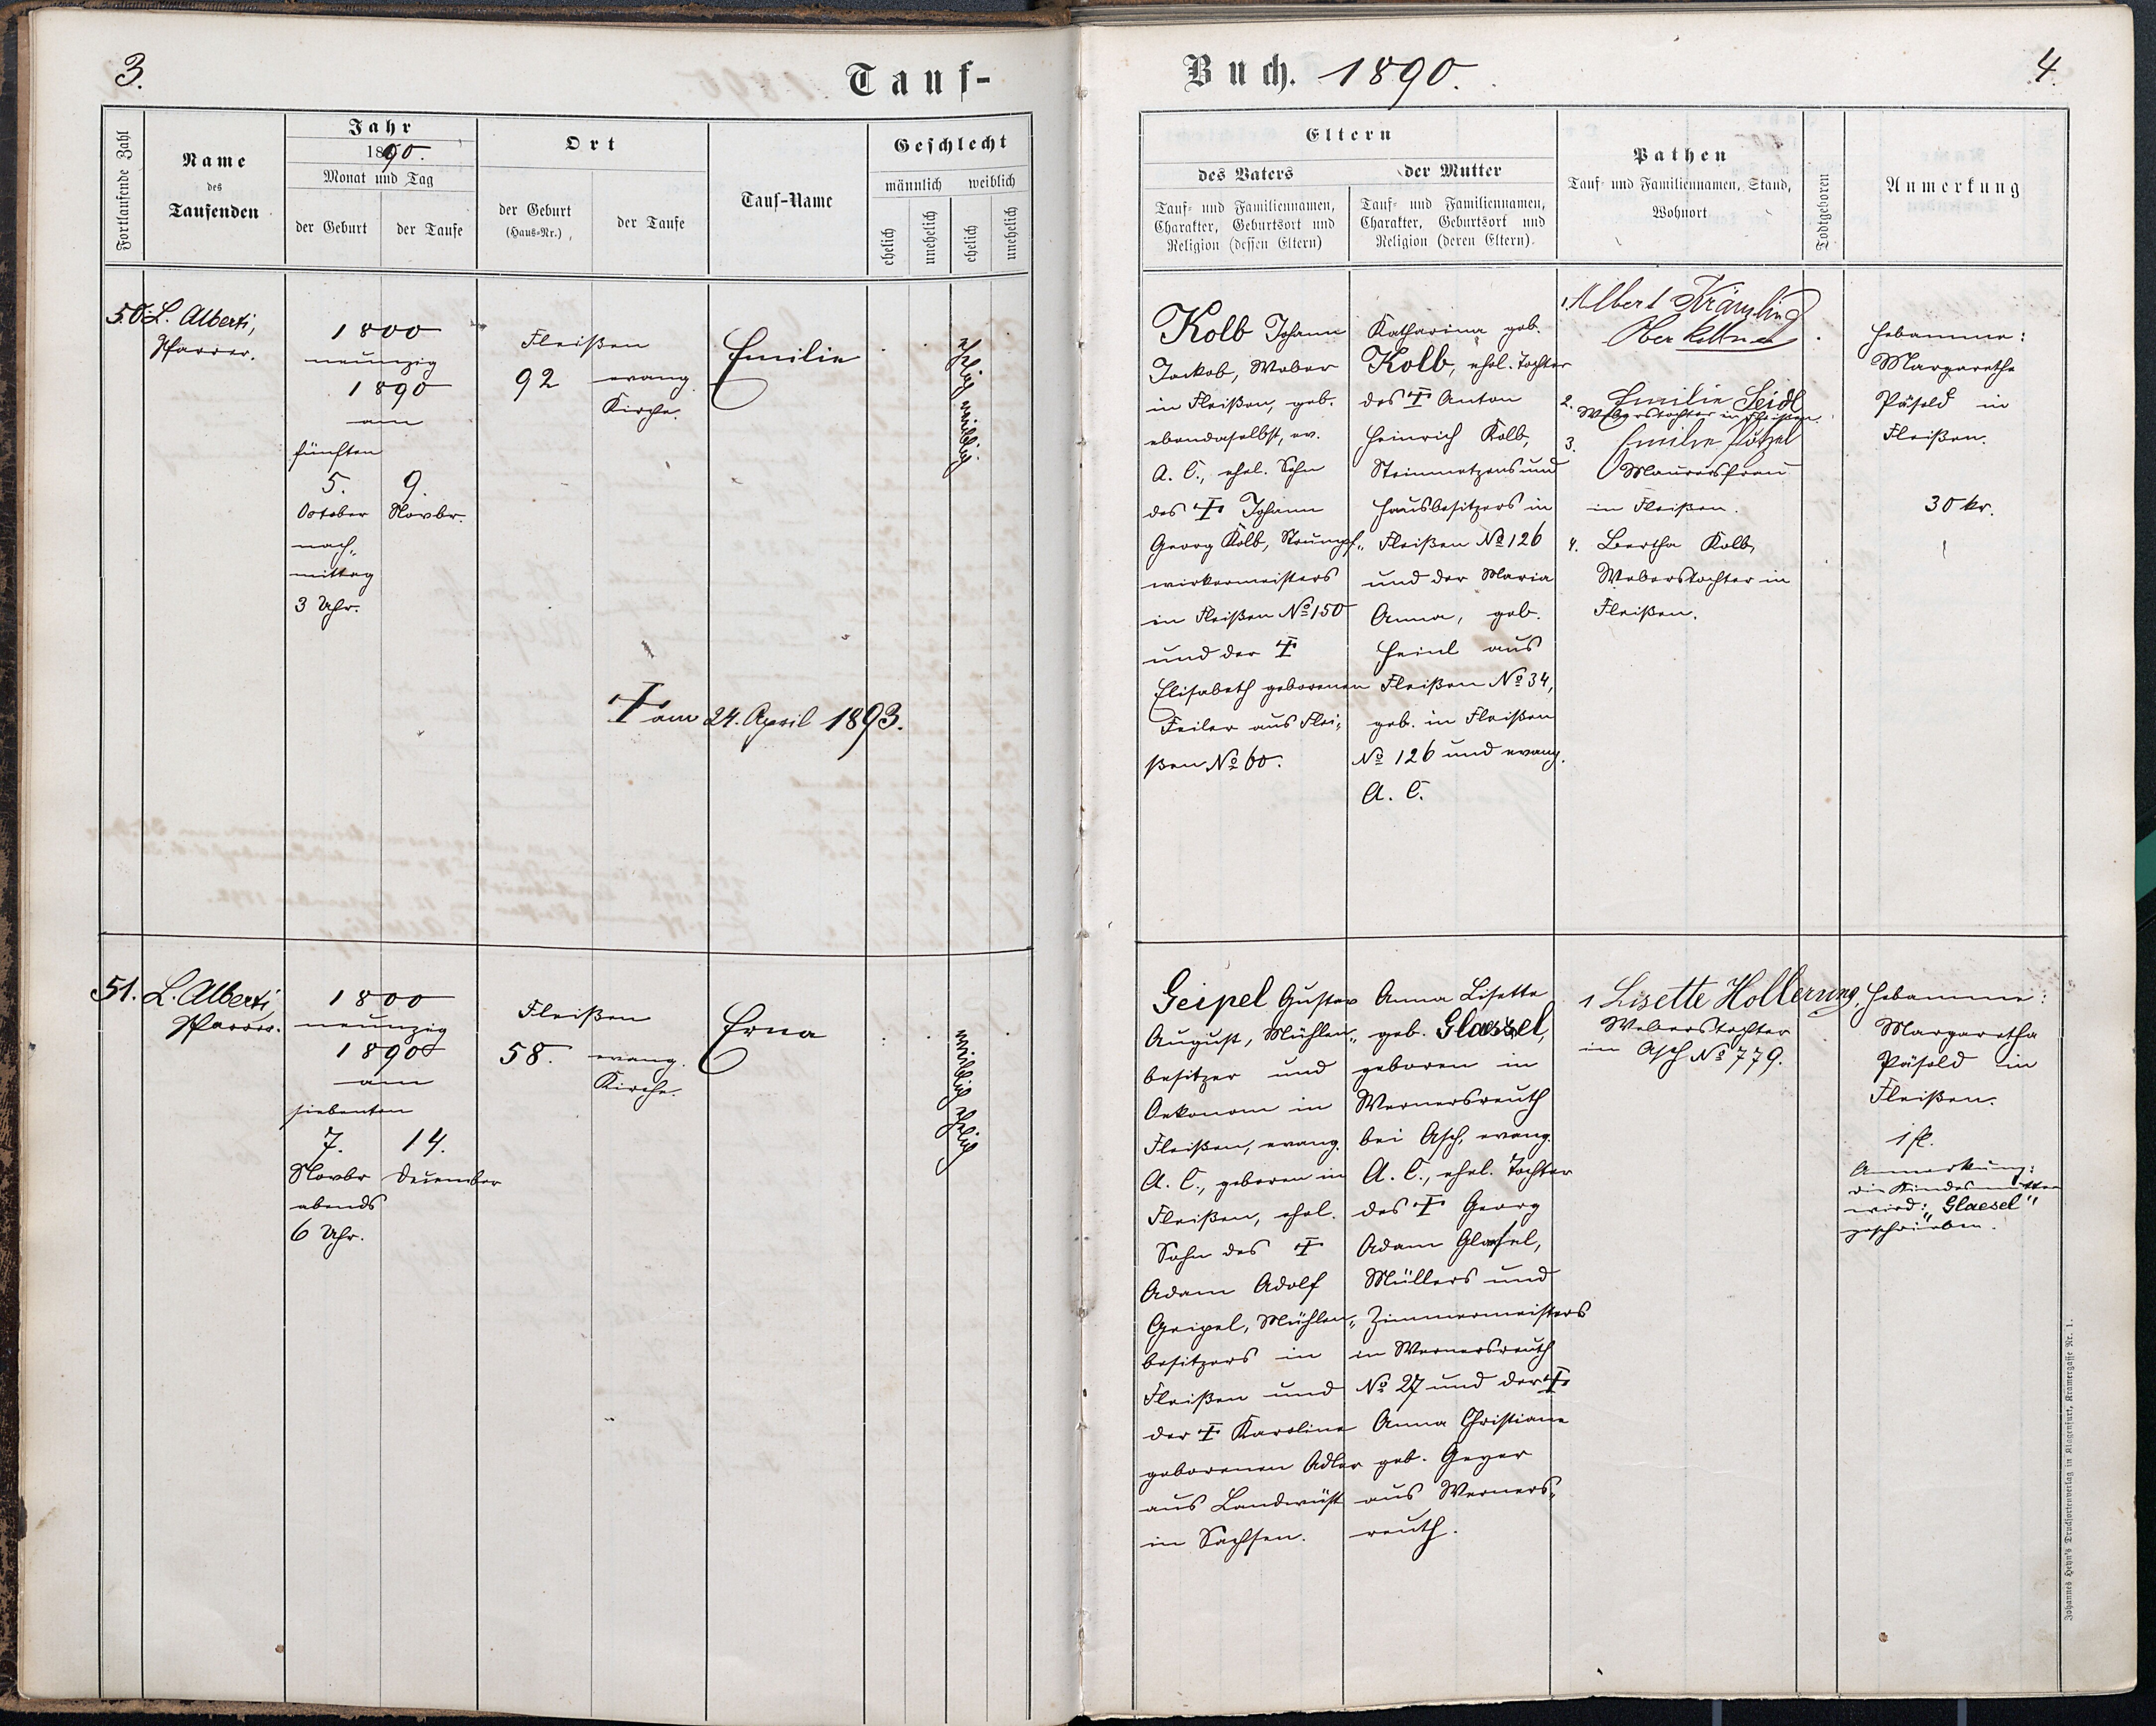 3.
Tauf-
Fortlaufende Zahl
Name
des
Taufenden
Jahr
1890.
Monat und Tag
der Geburt
der Taufe
Ort
der Geburt
(Haus-Nr.)
der Taufe
Tauf-Name
Geschlecht
männlich weiblich
ehelich
unehelich
ehelich
unehelich
50. L. Alberti,
Pfarrer.
1800
neunzig
1890
am
fünften
5. 9.
October Novbr.
nach„
mittag
3 Uhr.
Fleißen
92 evang.
Kirche.
Emilie
ehelich weiblich
† am 24. April 1893.
51. L. Alberti
Pfarrer.
1800
neunzig
1890
am
siebenten
7. 14.
Novbr December
abends
6 Uhr.
Fleißen
58. evang.
Kirche.
Erna
weiblich ehelich
Buch. 1890.
4.
Eltern
des Vaters
Tauf- und Familiennamen,
Charakter, Geburtsort und
Religion (dessen Eltern)
der Mutter
Tauf- und Familiennamen,
Charakter, Geburtsort und
Religion (deren Eltern).
Pathen
Tauf- und Familiennamen, Stand,
Wohnort
Todtgeboren
Anmerkung
Kolb Johann
Jackob, Weber
in Fleißen, geb.
ebendaselbst, ev.
A. C., ehel. Sohn
des † Johann
Georg Kolb, Strumpf„
wirkermeisters
in Fleißen No 150
und der †
Elisabeth geborenen
Feiler aus Flei„
ßen No 60.
Katharina geb.
Kolb, ehel. Tochter
des † Anton
Heinrich Kolb,
Steinmetzens und
Hausbesitzers in
Fleißen No 126
und der Maria
Anna, geb.
Heinl aus
Fleißen No 34,
geb. in Fleißen
No 126 und evang.
A. C.
1. Albert
Oberkellner
2. Emilie Seidl
Weberstochter in Fleißen.
3. Emilie Pötzel
Maurersfrau
in Fleißen.
4. Bertha Kolb,
Weberstochter in
Fleißen.
Hebamme:
Margaretha
Päsold in
Fleißen.
30 kr.
Geipel Gustav
August, Mühlen„
besitzer und
Oekonom in
Fleißen, evang.
A. C., geboren in
Fleißen, ehel.
Sohn des †
Adam Adolf
Geipel, Mühlen„
besitzers in
Fleißen und
der † Karoline
geborenen Adler
aus Landwüst
in Sachsen.
Anna Lisette
geb. Glaessel,
geboren in
Wernersreuth
bei Asch, evang.
A. C., ehel. Tochter
des † Georg
Adam Glaesel,
Müllers und
Zimmermeisters
in Wernersreuth
No 27 und der †
Anna Christiane
geb. Geyer
aus Werners„
reuth.
1 Lisette Hollerung,
Weberstochter
in Asch No 779.
Hebamme:
Margaretha
Päsold in
Fleißen.
1 fl.
Anmerkung:
die Kindesmutter
wird: „Glaesel“
geschrieben.
Johannes Heyn's Drucksortenverlag in Klagenfurt, Kramergasse Nr. 1.